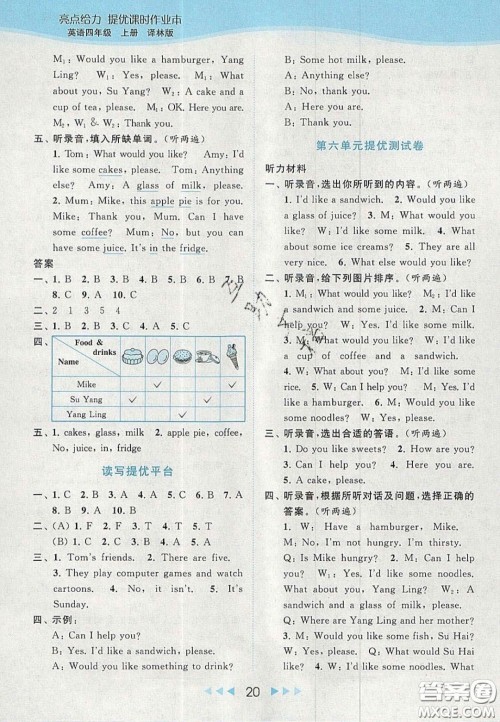 亮点给力 提优课时作业本
英语四年级 上册 译林版
M₁: Would you like a hamburger, Yang
Ling? W₁: Yes, please. M₁: What
about you? W₂: A cake and a
cup of tea, please. M₁: OK. Here are.
M₂, W₁ & W₂: Thank you.
五、听录音,填入所缺单词。(听两遍)
1. Tom: What would you like? Amy: I'd
like some cakes, please. Tom: Anything
else? Amy: A glass of milk, please.
2. Mum: Mike, this apple pie is for you.
Mike: Thank you, Mum. Can I have
some coffee? Mum: No, but you can
have some juice. It's in the fridge.
答案
一、1. B 2. B 3. C 4. B 5. A 6. B 7. B
8. C 9. A 10. C
二、2 1 3 5 4
三、1. B 2. C 3. B 4. C 5. A
四、
Food & drinks
Name
Mike ✓ ✓
Su Yang ✓ ✓
Yang Ling ✓ ✓
五、1. cakes, glass, milk 2. apple pie, coffee,
No, juice, in, fridge
读写提优平台
一、1. C 2. B 3. B 4. A 5. B
二、(A) 1. F 2. F 3. T 4. T
(B) 1. C 2. B 3. A 4. B
三、1. Tom's friends. 2. There are five.
3. They play computer games and watch
cartoons. 4. No, it isn't. 5. It's
Sunday.
四、示例:
A: Can I help you?
B: Yes, please.
A: Would you like something to drink?
B: No, thank you. I'd like some cakes.
A: Anything else?
B: No, thank you.
A: Here you are.
B: Thank you.
第六单元提优测试卷
听力材料
一、听录音,选出你所听到的内容。(听两遍)
1. I'd like a sandwich. 2. Would you like
a glass of juice? 3. M: What would you
like? W: Some noodles, please. 4. What
about some ice creams? 5. They are all
very nice. 6. M: What would you like?
二、听录音,给下列图片排序。(听两遍)
1. M: I'd like a sandwich. 2. M: Can I
help you? W: I'd like some coffee.
3. M: What would you like? W: I'd like
a cup of coffee and a sandwich.
4. M: What are these? W: They're
hamburgers. 5. W: Can I help you?
M: I'd like a glass of milk, please.
三、听录音,选出合适的答语。(听两遍)
1. Do you like sweets? 2. Where are my
sandwiches? 3. How about a cake?
4. What would you like? 5. Can I help
you?
四、听录音,根据所听对话及问题,选择正确的
答案。(听两遍)
1. W: Here's a hamburger, Mike.
M: No, thank you. I'd like a sandwich.
Q: What would Mike like?
2. W: I'd like some noodles, Mum.
What about you? M: I'd like some
noodles too.
Q: Where are Yang Ling and her mother?
3. M: Can I help you? W: Yes. I'd like
some noodles. What about you, Mike?
M: I'd like some noodles too.
Q: What would they like?
4. M: Would you like some fish, Su Hai?
W: Yes, please.
Q: What would Su Hai like?
20
答案圈
MXQE.COM